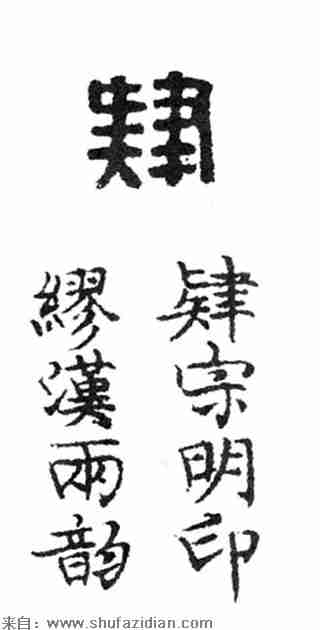 肄
肄宗明印
繆漢兩韵
来自：www.shufazidian.com